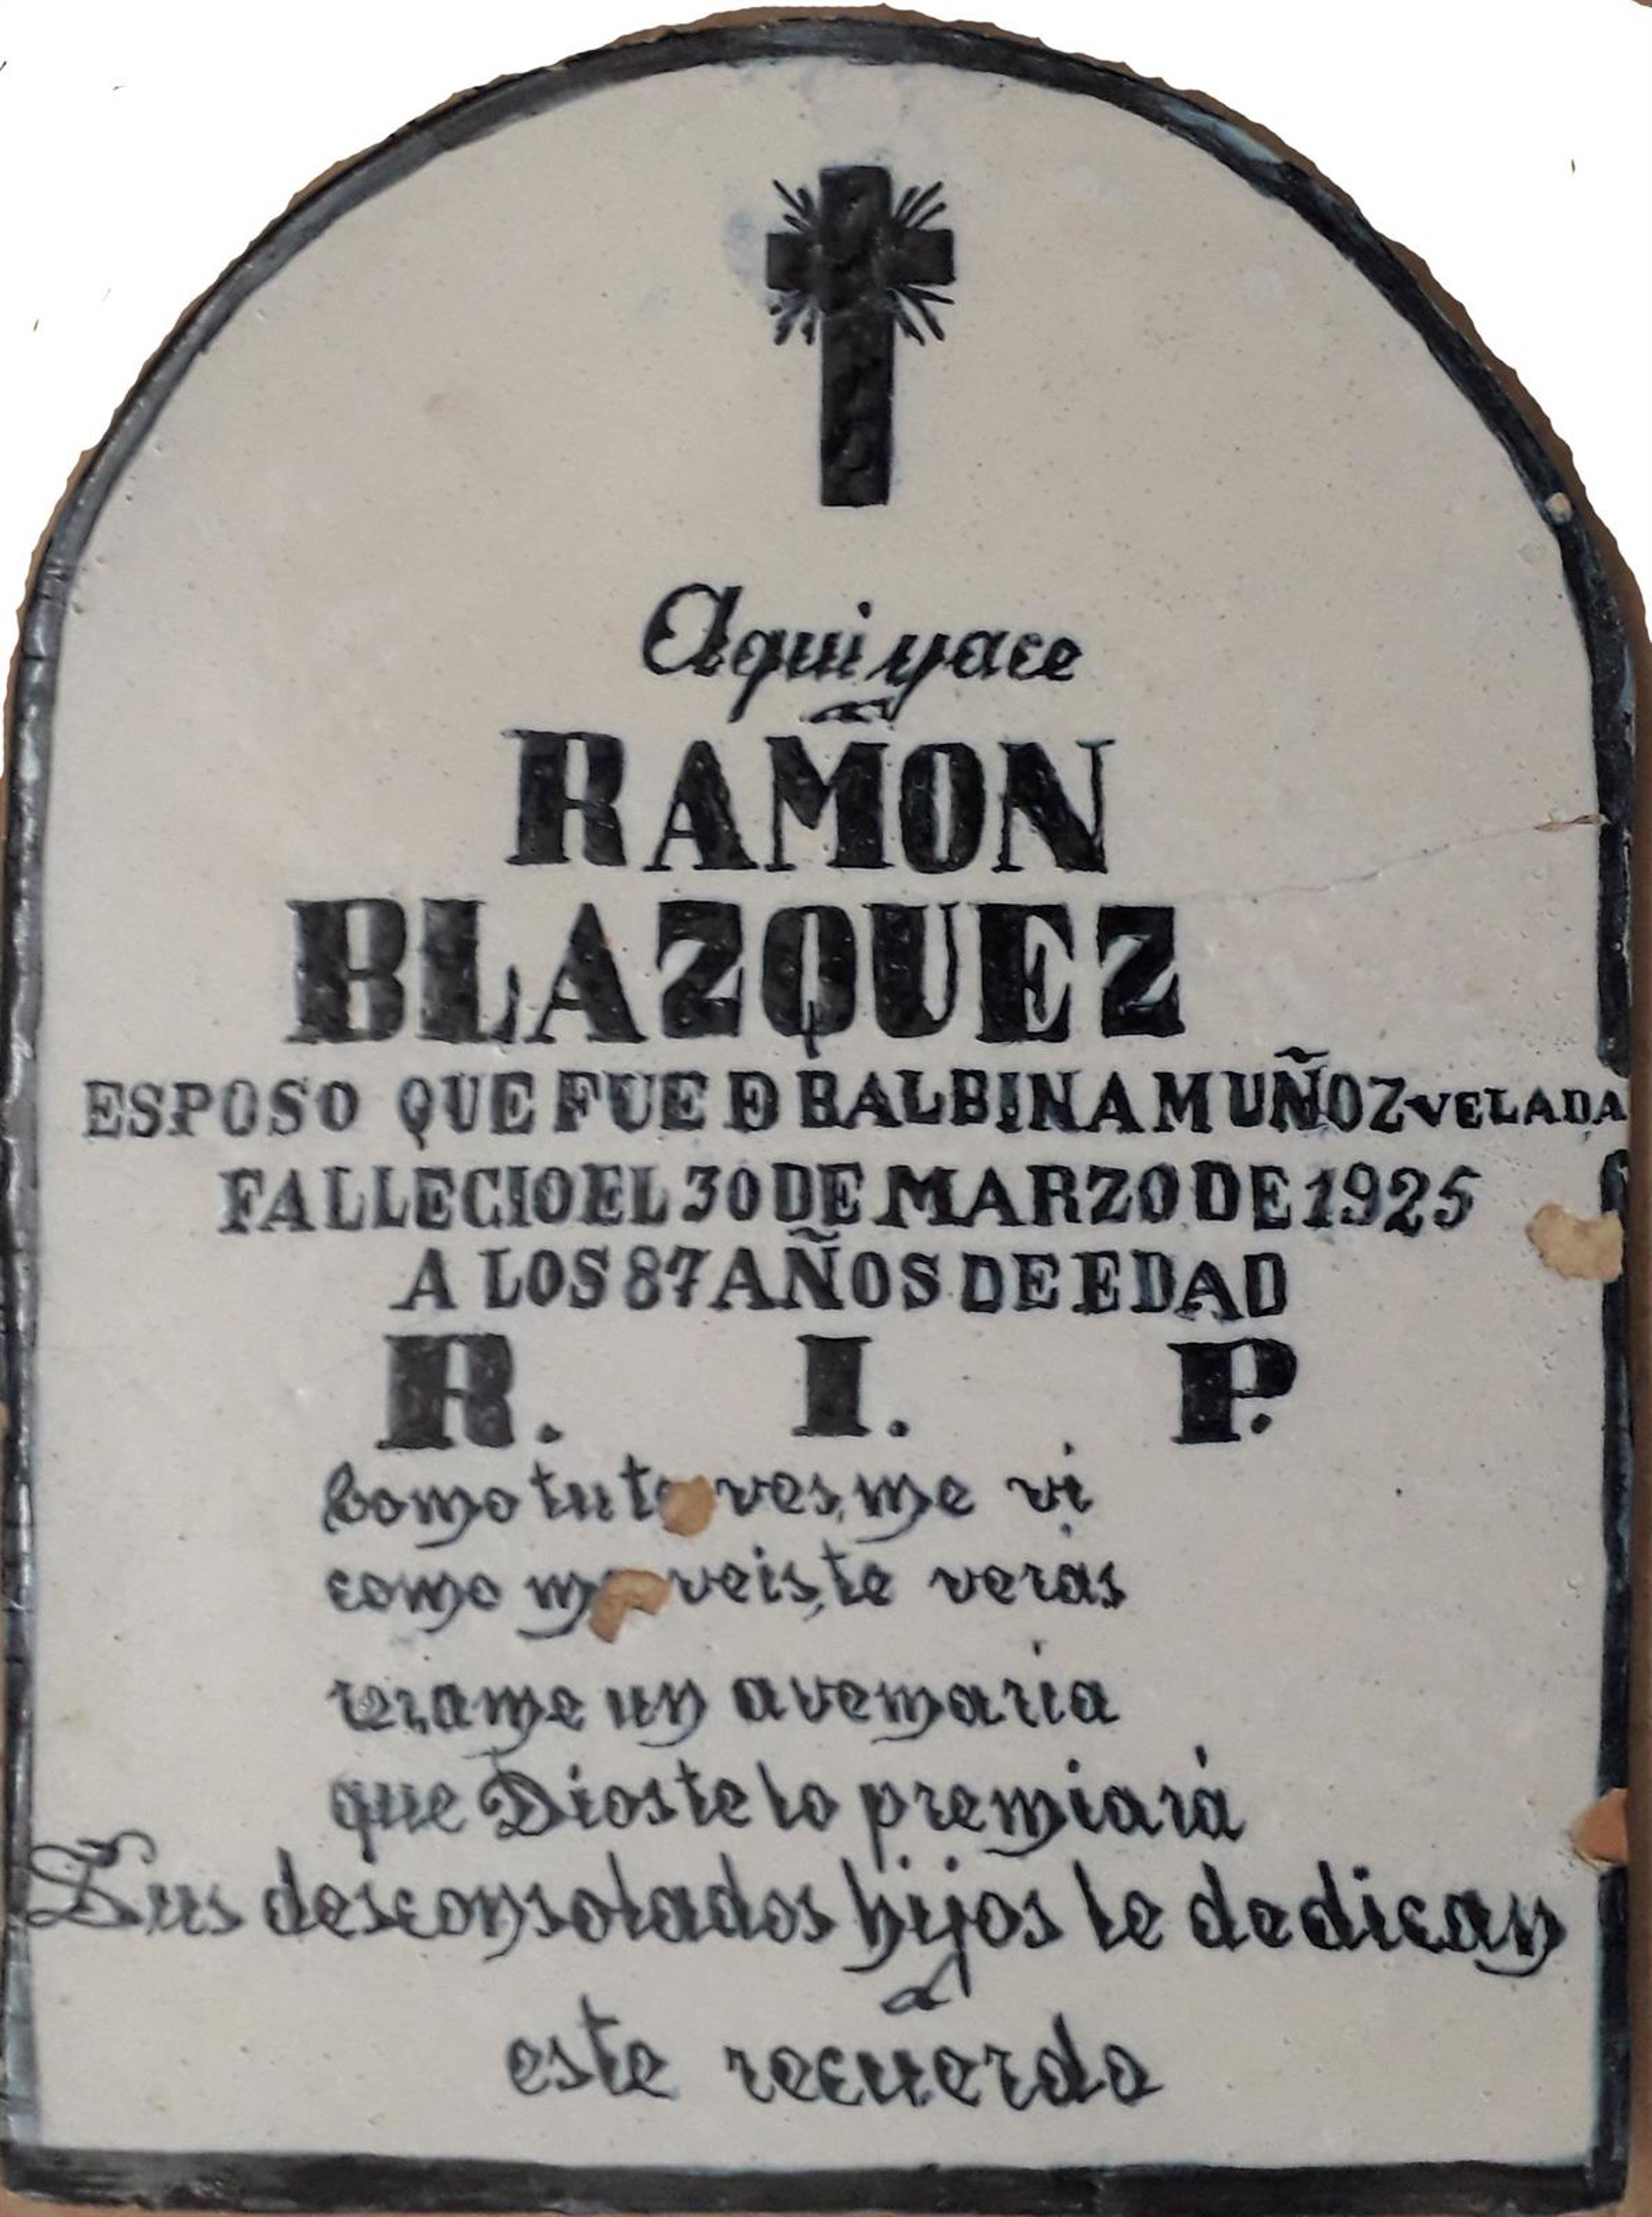 Aqui yace
RAMON
BLAZQUEZ
ESPOSO QUE FUE D BALBINA MUÑOZ VELADA
FALLECIO EL 30 DE MARZO DE 1925
A LOS 87 AÑOS DE EDAD
R. I. P.
Como tu te ves, me vi
como me veis, te veras
rezame un avemaria
que Dios te lo premiará
Sus desconsolados hijos le dedican
este recuerdo